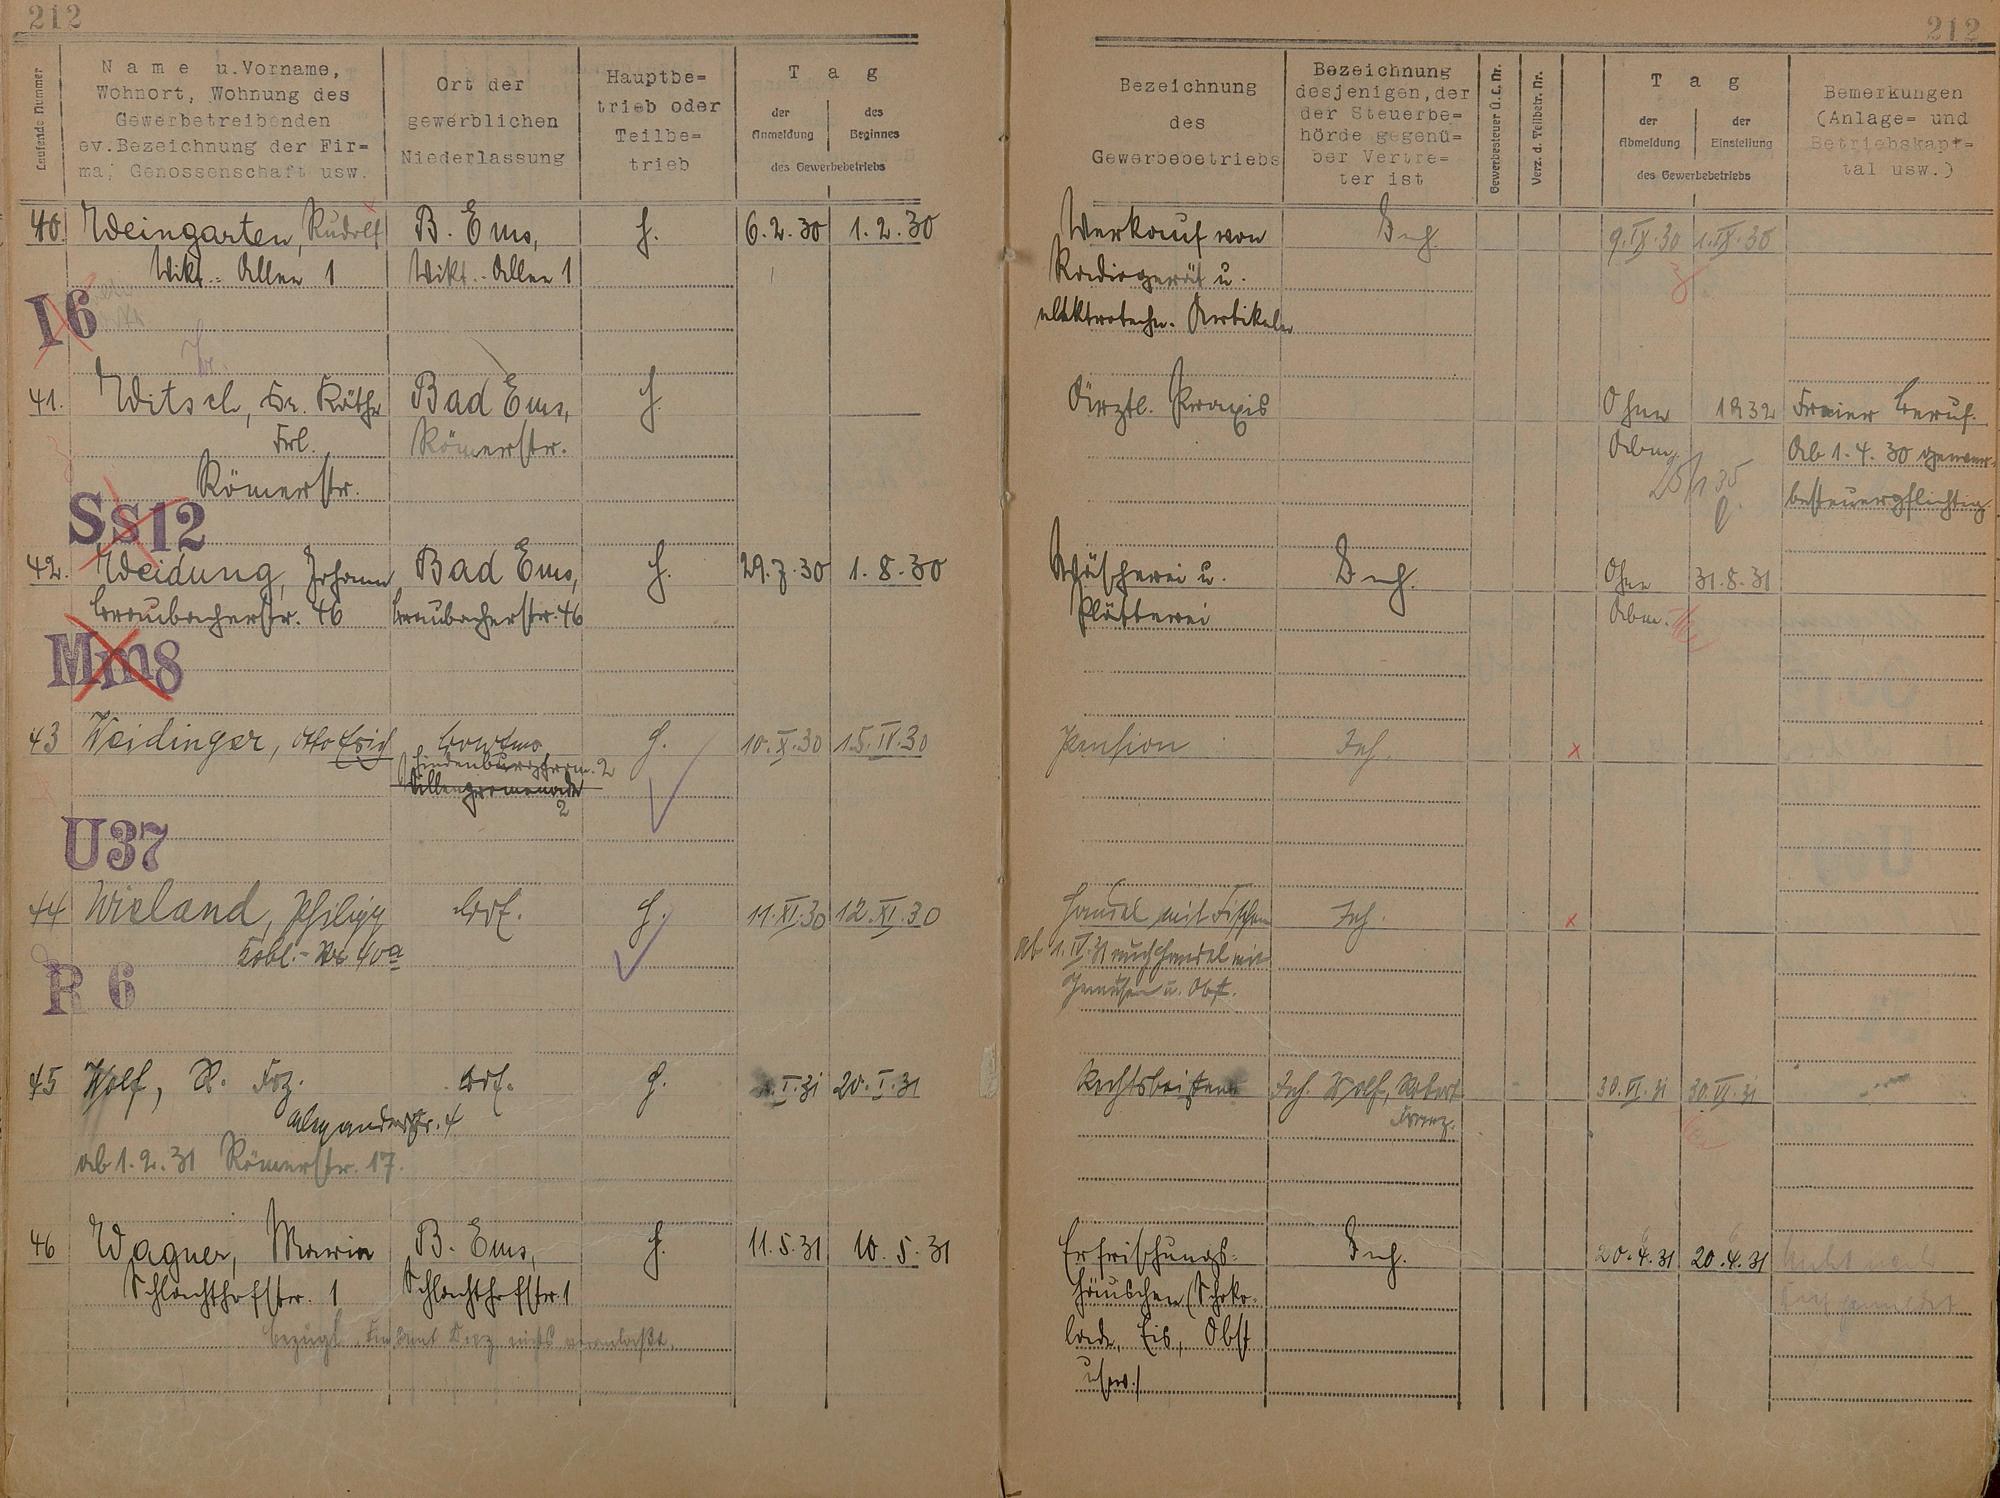 212
212
Laufende Nummer
Name u. Vorname,
Wohnort, Wohnung des
Gewerbetreibenden
ev. Bezeichnung der Fir=
ma, Genossenschaft usw.
Ort der
gewerblichen
Niederlassung
Hauptbe=
trieb oder
Teilbe=
trieb
Tag
der
Anmeldung
des
Beginnes
des Gewerbebetriebs
Bezeichnung
des
Gewerbebetriebs
Bezeichnung
desjenigen, der
der Steuerbe=
hörde gegenü=
ber Vertre=
ter ist
Gewerbesteuer Ü. L. Nr.
Verz. d. Teilbetr. Nr.
Tag
der
Abmeldung
der
Einstellung
des Gewerbebetriebs
Bemerkungen
(Anlage= und
Betriebskapi=
tal usw.)
40. Weingarten, Rudolf B. Ems, H. 6.2.30 1.2.30 Verkauf von Inh. 9.IX.30 1.IX.30
Vikt.- Allee 1 Vikt.- Allee 1 Radiogerät u.
I6 elektrotechn. Artikeln
41. Witsch, Dr. Käthe Bad Ems, H. Ärztl. Praxis Ohne 1932 Freier Beruf.
Frl. Römerstr. Abm. Ab 1.4.30 gewer-
Römerstr. besteuerpflichtig
Ss12
42. Weidung, Johann Bad Ems, H. 29.7.30 1.8.30 Wäscherei u. Inh. Ohne 31.8.31
Braubacherstr. 46 Braubacherstr. 46 Plätterei Abm.
Mm8
43 Weidinger, Otto Erich Bad Ems H. 10.X.30 15.IV.30 Pension Inh. x
Hindenburgprom. 2
Villenpromenade
2
U37
44 Wieland, Philipp dof. H. 11.XI.30 12.XI.30 Handel mit Fischen Inh. x
Kobl.- Str 40a ab 1.IV.31 auch Handel mit
R 6 Gemüse u. Obst.
45 Wolf, R. Frz. dof. H. I.31 20.I.31 Rechtsbeistand Inh. Wolf, Robert 30.VI.31 30.VI.31
Alexanderstr. 4 Franz.
ab 1.2.31 Römerstr. 17.
46 Wagner, Maria B. Ems, H. 11.5.31 10.5.31 Erfrischungs= Inh. 20.4.31 20.4.31
Schlachthofstr. 1 Schlachthofstr. 1 häuschen (Schoko-
nichts veranlaßt. lade, Eis, Obst
usw.)